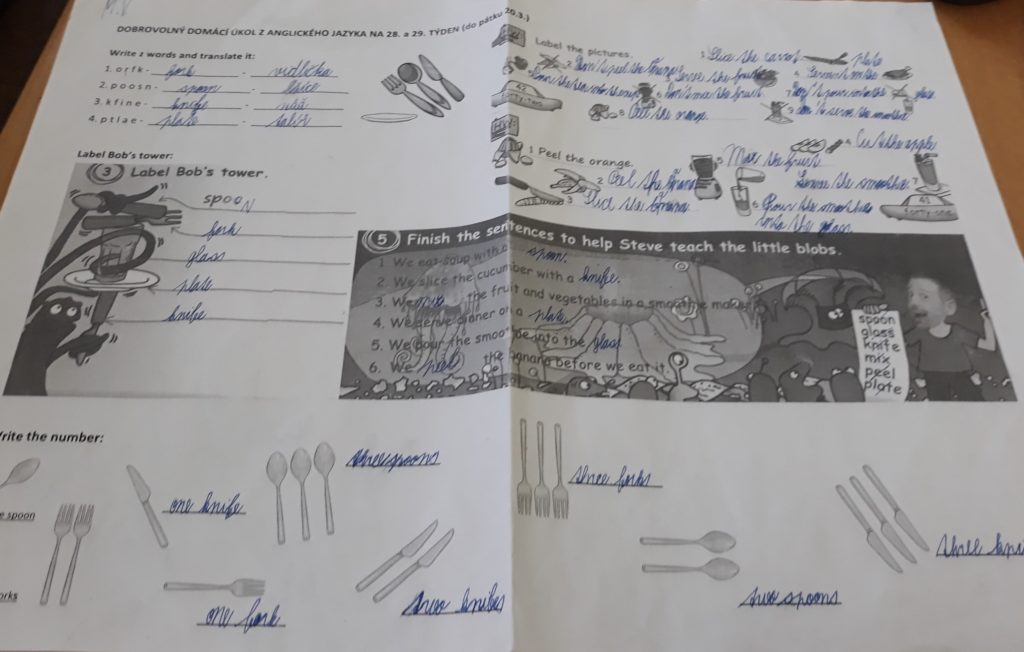 DOBROVOLNÝ DOMÁCÍ ÚKOL Z ANGLICKÉHO JAZYKA NA 28. a 29. TÝDEN (do pátku 20.3.)
Write 2 words and translate it:
1. o r f k - fork - vidlička
2. p o o s n - spoon - lžíce
3. k f i n e - knife - nůž
4. p t l a e - plate - talíř
Label Bob's tower:
3 Label Bob's tower.
spoon
fork
glass
plate
knife
Label the pictures.
1 Slice the carrot
plate
2 Don't peel the orange
3 Serve the fruit
6 Don't mix the fruit.
8 Peel the orange.
42
forty-two
1 Peel the orange.
2 Peel the banana
3 Slice the banana
4 Cut the apple
5 Mix the fruit
6 Pour the smoothie
into the glass
7 Serve the smoothie
42
forty-two
5 Finish the sentences to help Steve teach the little blobs.
1. We eat soup with a spoon.
2. We slice the cucumber with a knife.
3. We mix the fruit and vegetables in a smoothie maker.
4. We serve dinner on a plate.
5. We pour the smoothie into the glass
6. We peel the banana before we eat it.
spoon
glass
knife
mix
peel
plate
Write the number:
spoon
one knife
three spoons
one fork
two knifes
three forks
two spoons
three